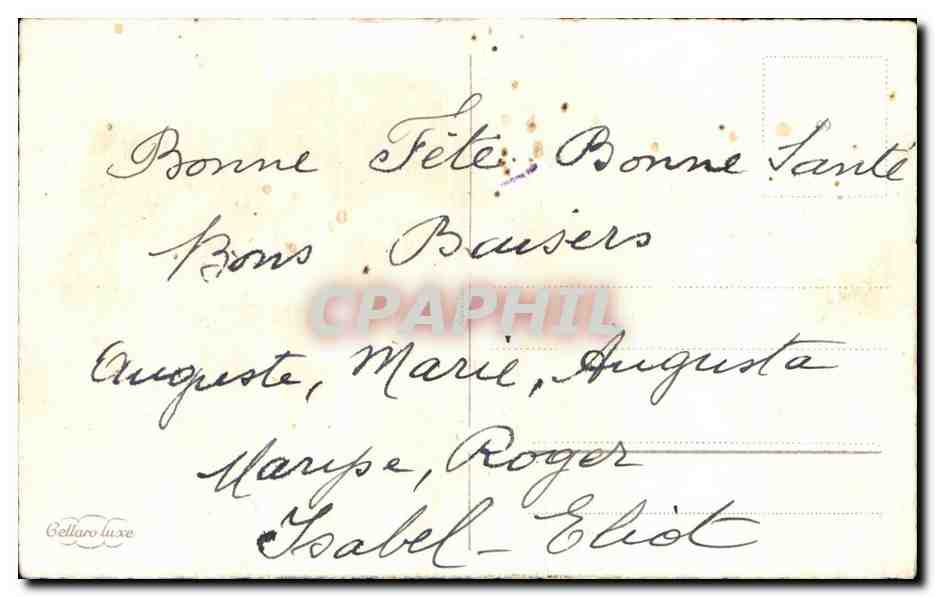 Bonne Fête Bonne Santé
Bons Baisers
CPAPHIL
Auguste, Marie, Augusta
Roger
Isabel - Eliot
Cellaro luxe